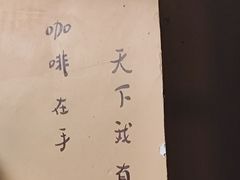 咖啡在手
天下我有